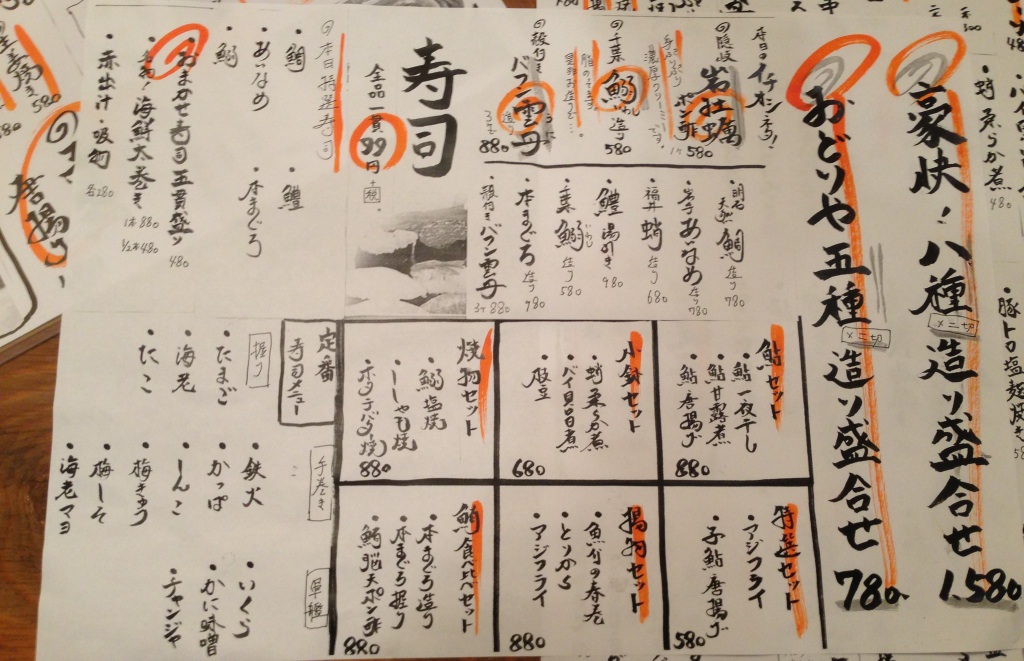 豪快！八種造り盛合せ 1.580
×二切
おどりや五種造り盛合せ 780
×二切
本日のイチオシ！
隠岐 岩牡蠣ポン酢 1ヶ580
千葉 鰯造り 580
殻付きバフン雲丹
880
明石天然鯛造り 780
あいなめ造り 780
福井 蛸造り 680
鱧湯引き 980
千葉 鰯造り 580
本まぐろ造り 980
殻付きバフン雲丹 3ヶ880
寿司
全品一貫99円
+税
本日特選寿司
・鯛
・あいなめ
・鰯
・鱧
・本まぐろ
・おまかせ寿司五貫盛り 480
・名物！海鮮太巻き 1本880 1/2本480
・赤出汁・吸物 各280
鮎セット
・鮎一夜干し
・鮎甘露煮
・鮎唐揚げ
880
小鉢セット
・蛸柔らか煮
・バイ貝旨煮
・枝豆
680
焼物セット
・鰯塩焼
・ししゃも焼
・ホタテバター焼
880
特選セット
・アジフライ
・子鮎唐揚げ
580
揚物セット
・魚介の春巻
・とりから
・アジフライ
880
鮪食べ比べセット
・本まぐろ造り
・本まぐろ握り
・鮪脳天ポン酢
880
定番
寿司メニュー
握り
・たまご
・海老
・たこ
手巻き
・鉄火
・かっぱ
・しんこ
・梅きゅう
・梅しそ
・海老マヨ
軍艦
・いくら
・かに味噌
・チャンジャ
・蛸柔らか煮 480